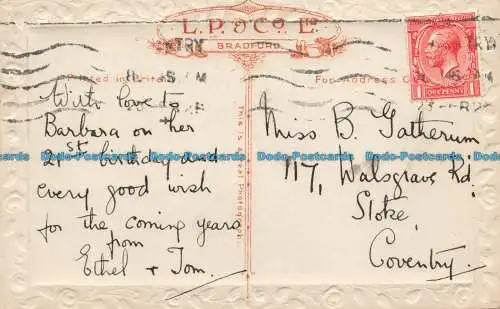 L.P. & Co. Ld
BRADFORD.
ENTRY
Printed in
For Address
This is a Real Photograph.
ONE PENNY
With love to
Barbara on her
21st birthday and
every good wish
for the coming years
from
Ethel + Tom.
Miss B. Gatherum
117, Walsgrave Rd.
Stoke
Coventry.
Dodo-Postcards Dodo-Postcards Dodo-Postcards Dodo-Postcards